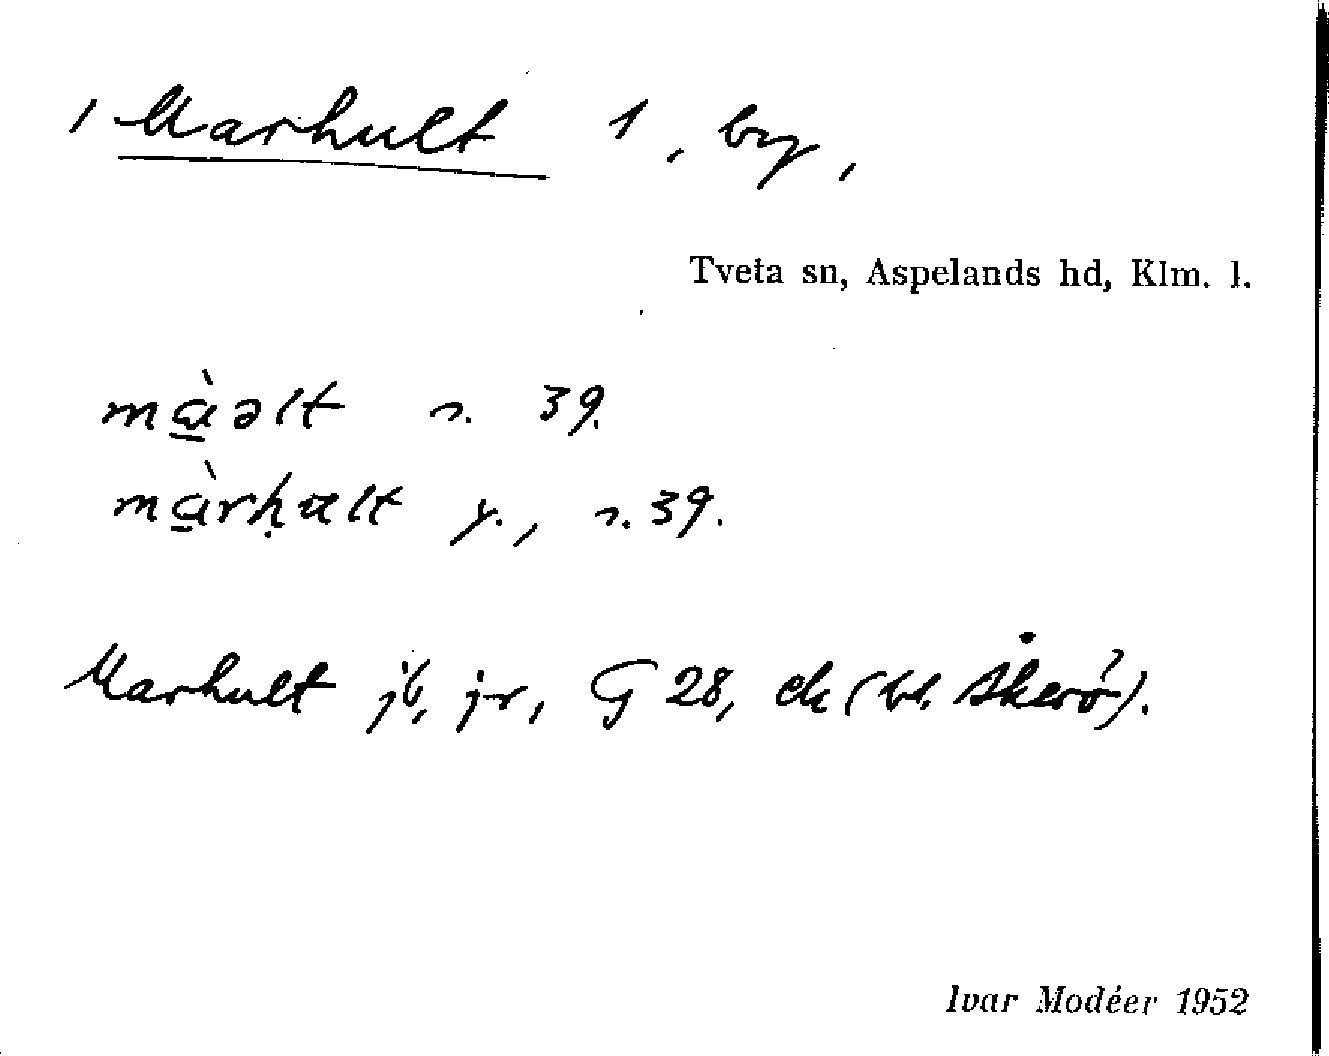 1 Marhult 1, by,
Tveta sn, Aspelands hd, Klm. l.
mà̱əlt n. 39.
mà̱rḥult y., n. 39.
Marhult jb, jr, G 28, ek (bl. Åkerö).
Ivar Modéer 1952